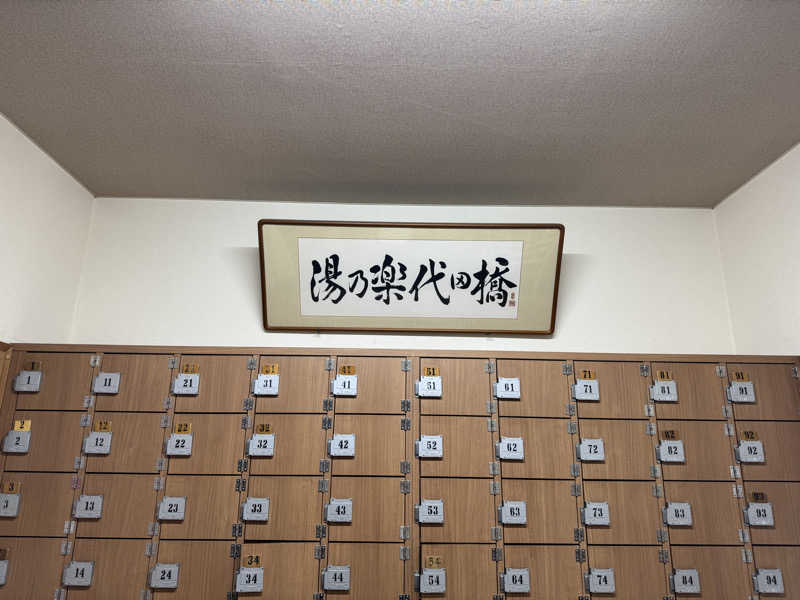 湯乃楽代田橋
1 21 31 41 51 71 81 91
1 11 21 31 41 51 61 71 81 91
2 12 22 32 82 92
2 12 22 32 42 52 62 72 82 92
3 93
3 13 23 33 43 53 63 73 83 93
34 54
14 24 34 44 54 64 74 84 94